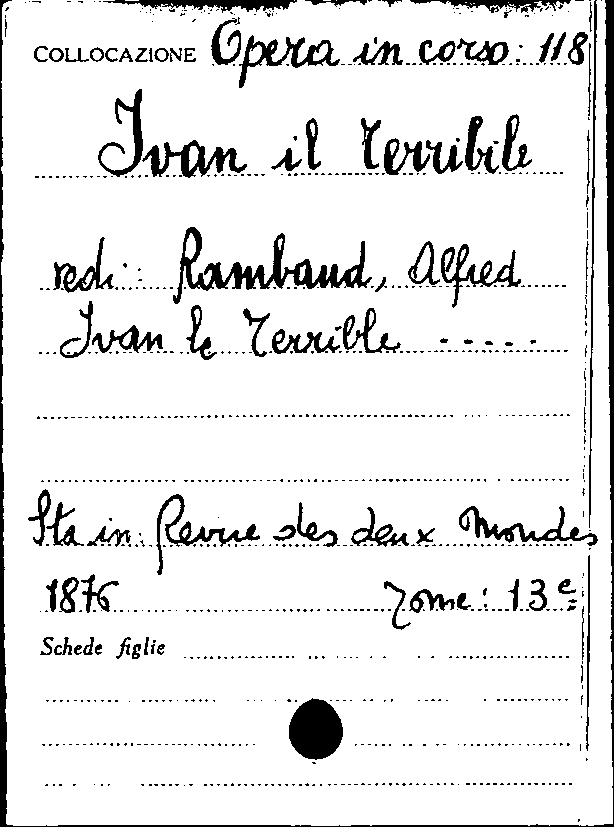 COLLOCAZIONE Opera in corso: 118
Ivan il Terribile
vedi: Rambaud, Alfred
Ivan le Terrible -----
Sta in: Revue des deux Mondes
1876 Tome: 13e
Schede figlie